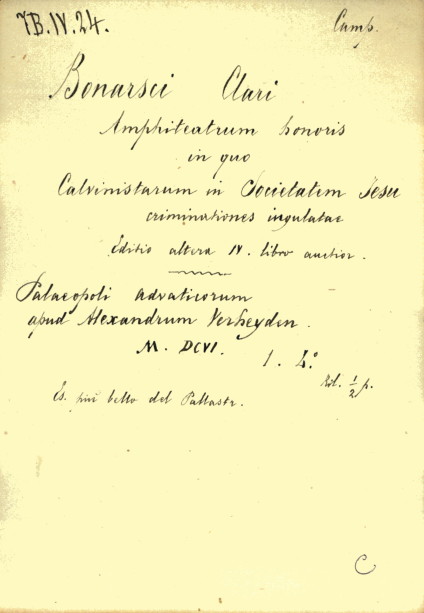 7B.IV.24.
Camp.
Bonarsci Clari
Amphiteatrum honoris
in quo
Calvinistarum in Societatem Jesu
criminationes iugulatae
Editio altera IV. libro auctior.
Palaeopoli Advaticorum
apud Alexandrum Verheyden.
M. DCVI.
1. 4.°
Ril. ½ p.
Es. più bello del Pallastr.
C